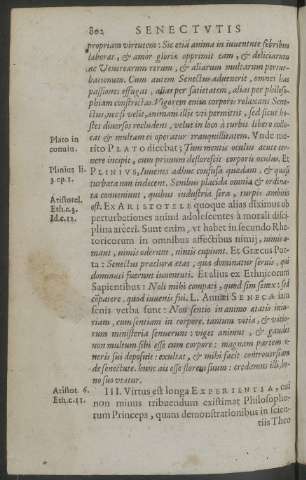 802 SENECTVTIS
propriam virtutem: Sic etiã anima in iuuentute febribus
laborat, & amor gloriæ opprimit eam, & deliciarum
ac Venerearum rerum, & aliarum multarum pertur-
bationum. Cum autem Senectus aduenerit, omnes has
passiones effugat, alias per satietatem, alias per philoso-
phiam constrictas. Vigorem enim corporis relaxans Senec-
tus, nec si velit, animam illis vti permittit, sed sicut ho-
stes diuersos recludens, velut in loco à turbis libero collo-
cat & multam ei operatur tranquillitatem. Vnde me-
Plato in
conuiu.
ritò PLATO dicebat; Tum mentis oculus acutè cer-
nere incipit, cum primùm deflorescit corporis oculus. Et
Plinius li.
3. ep. 1.
PLINIVS, Iuuenes adhuc confusa quædam, & quasi
turbata non indecent. Senibus placida omnia & ordina-
ta conueniunt, quibus industria sera, turpis ambitio
Aristotel.
Eth.c.3.
Id.c.12.
est. Ex ARISTOTELE quoque alias diximus ob
perturbationes animi adolescentes à morali disci-
plina arceri. Sunt enim, vt habet in secundo Rhe-
toricorum in omnibus affectibus nimij, nimis a-
mant, nimis oderunt, nimis cupiunt. Et Græcus Poë-
ta: Senectus præclara ætas, quod dominatur seruis, qui
domini fuerunt iuuentuti. Et alius ex Ethnicorum
Sapientibus: Noli mihi computari, quod sim senex: sed
cõputare, quod iuuenis fui. L. Annæi SENECA in-
senis verba sunt: Non sentio in animo ætatis iniu-
riam, cum sentiam in corpore, tantum vitia, & vitio-
rum ministeria senuerunt: viget animus, & gaudet
non multum sibi esse cum corpore: magnam partem o-
neris sui deposuit: exultat, & mihi facit controuersiam
de senectute. hunc ait esse florem suum: credamus illi, bo-
no suo vtatur.
Aristot. 6.
Eth.c.11.
III. Virtus est longa EXPERIENTIA, cui
non minus tribuendum existimat Philosopho-
rum Princeps, quàm demonstrationibus in scien-
tiis Theo